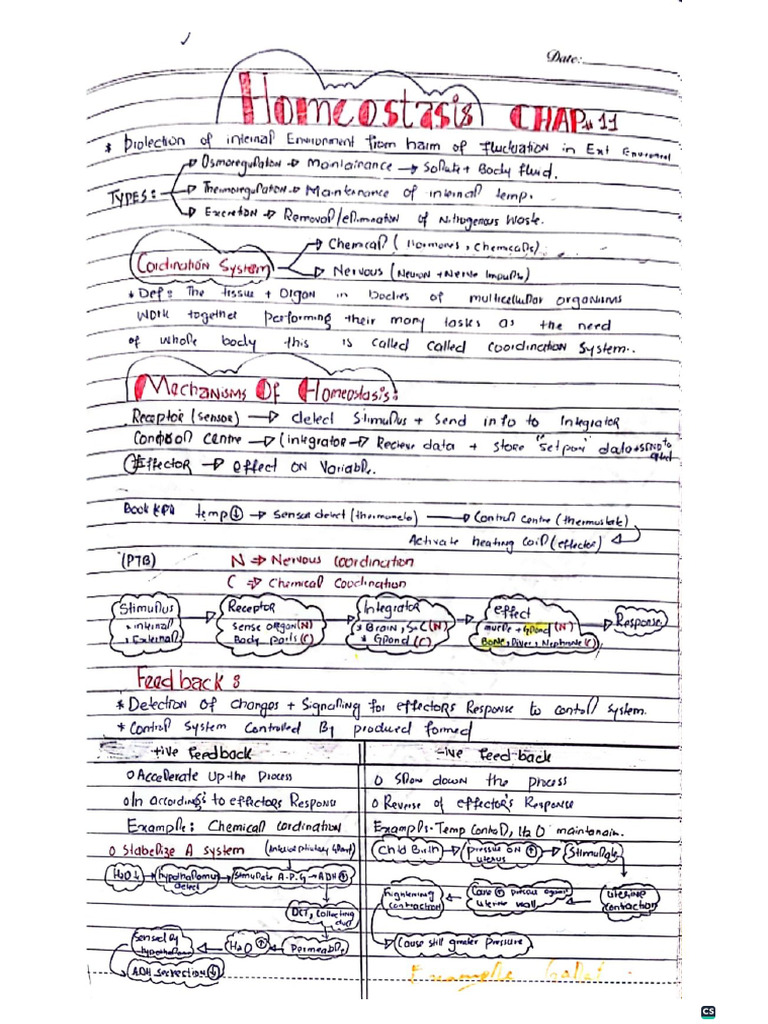 Date:
Homeostasis CHAP# 11
* Protection of internal Environment from harm of fluctuation in Ext Enviroment
TYPES:
→ Osmoregulation → Maintainance → Solute + Body fluid.
→ Thermoregulation → Maintenance of internal temp.
→ Excretion → Removal/elimination of Nitrogenous Waste.
Cordination System
→ Chemical ( Hormones, Chemicals)
→ Nervous (Neuron + Nerve Impulse)
* Def: The tissue + Organ in bodies of multicellular organisms
work together performing their many tasks as the need
of whole body this is called called coordination System..
Mechanisms Of Homeostasis:
Receptor (sensor) → detect Stimulus + Send info to Integrator
Control centre → (integrator → Recieve data + store "set point" data + send to
Effector → effect ON Variable.
Book KPK temp↓ → Sensor detect (thermometer) → Control centre (thermostate)
Activate heating coil (effector)
(PTB) N → Nervous coordination
C → Chemical Coordination
Stimulus
• internal
• External
→ Receptor
sense organ (N)
Body parts (C)
→ Integrator
* Brain, S.C (N)
* Gland (C)
→ effect
muscle + Gland (N)
Bone, liver, Nephrone (C)
→ Response
Feedback :
* Detection of changes + Signalling for effectors Response to control system.
* Control System Controlled By produced formed
+ive feedback
o Accelerate Up the Process
o In according to effectors Response
Example: Chemical cordination
o Stabelize A system (Anterior pituitary Gland)
H2O↓ → hypothalamus detect → Stimulate A.P.G → ADH↑
DCT, Collecting duct
Sensed by hypothalamus ← H2O↑ ← Permeable
ADH secreation↓
-ive feed-back
o Slow down the process
o Reverse of effector's Response
Example. Temp Control, H2O maintanain.
Child Birth → pressure ON uterus↑ → Stimulate
contraction ← Cause↑ pressure against uterine wall ← Uterine contraction
→ Cause still greater pressure
Example
CS